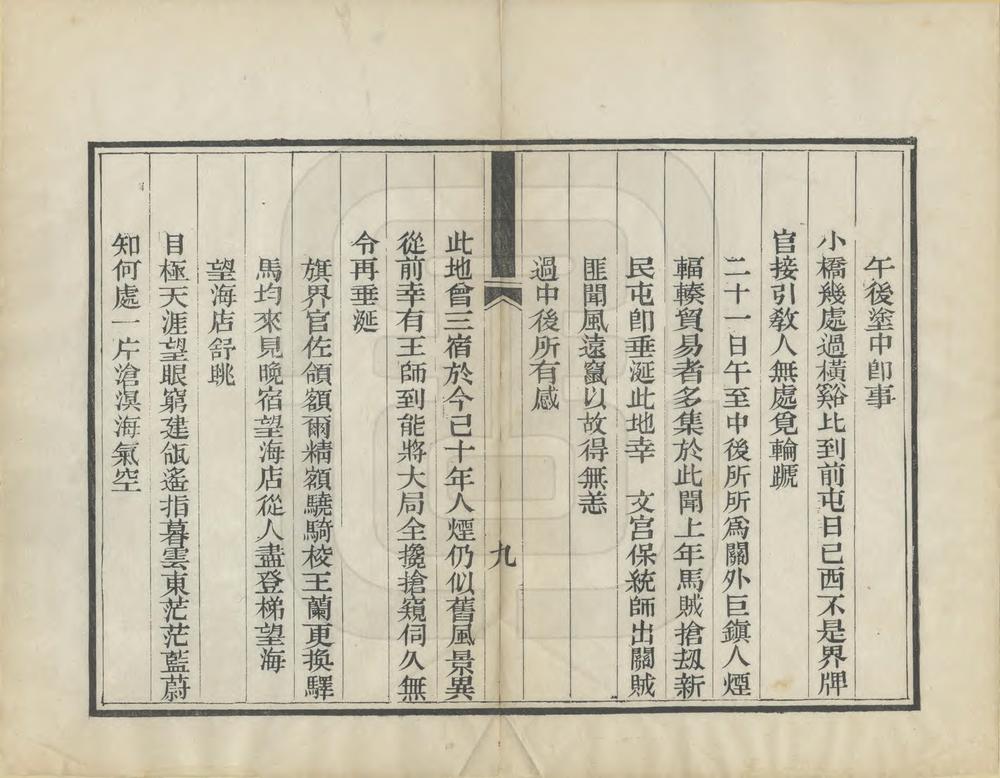 午後塗中卽事
小橋幾處過橫谿比到前屯日已西不是界牌
官接引敎人無處覓輪蹏
二十一日午至中後所所爲關外巨鎭人煙
輻輳貿易者多集於此聞上年馬賊搶刼新
民屯卽垂涎此地幸　文宮保統師出關賊
匪聞風遠竄以故得無恙
過中後所有感
九
此地曾三宿於今已十年人煙仍似舊風景異
從前幸有王師到能將大局全攙搶窺伺久無
令再垂涎
旗界官佐領額爾精額驍騎校王蘭更換驛
馬均來見晚宿望海店從人盡登梯望海
望海店舒眺
目極天涯望眼窮建瓴遙指暮雲東茫茫藍蔚
知何處一片滄溟海氣空